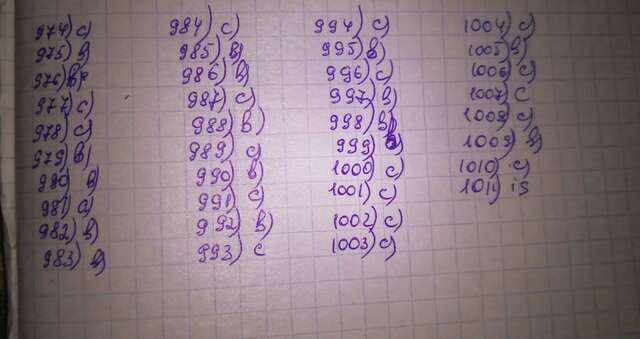 974) c)
975) b)
976) b)
977) c)
978) c)
979) b)
980) b)
981) a)
982) b)
983) b)
984) c)
985) b)
986) b)
987) c)
988) b)
989) c)
990) b)
991) c)
992) b)
993) c
994) c)
995) b)
996) c)
997) b)
998) b)
999)
1000) c)
1001) c)
1002) c)
1003) c)
1004) c)
1005) b)
1006) c)
1007) c
1008) c)
1009) b)
1010) c)
1011) is